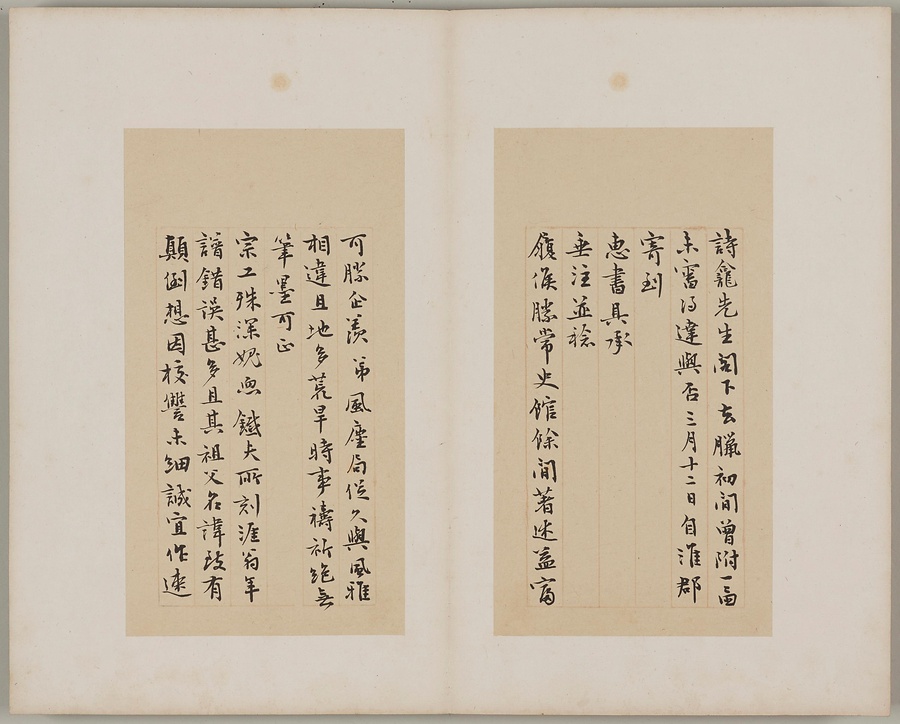 詩龕先生閣下去臘初間曾附一函
未審得達與否三月十二日自淮郡
寄到
惠書具承
垂注並稔
履候勝常史館餘間著述益富
可勝企羨弟風塵局促久與風雅
相違且地多荒旱時事禱祈絶無
筆墨可正
宗工殊深媿恧鐵夫所刻涯翁年
譜錯誤甚多且其祖父名諱致有
顛倒想因校讐未細誠宜作速